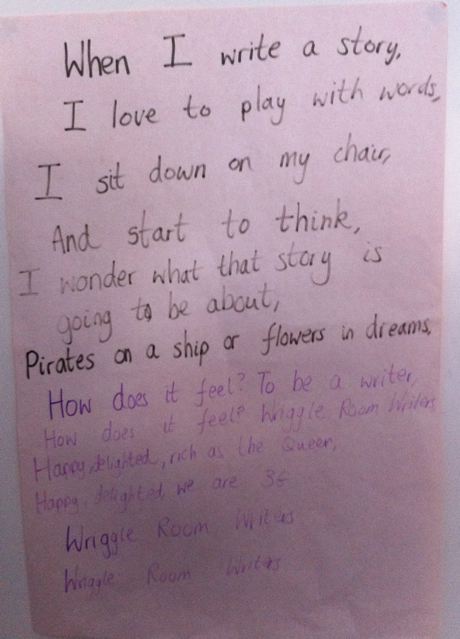 When I write a story,
I love to play with words,
I sit down on my chair,
And start to think,
I wonder what that story is
going to be about,
Pirates on a ship or flowers in dreams,
How does it feel? To be a writer,
How does it feel? Wriggle Room Writers
Happy, delighted, rich as the Queen,
Happy, delighted, we are 3G
Wriggle Room Writers
Wriggle Room Writers